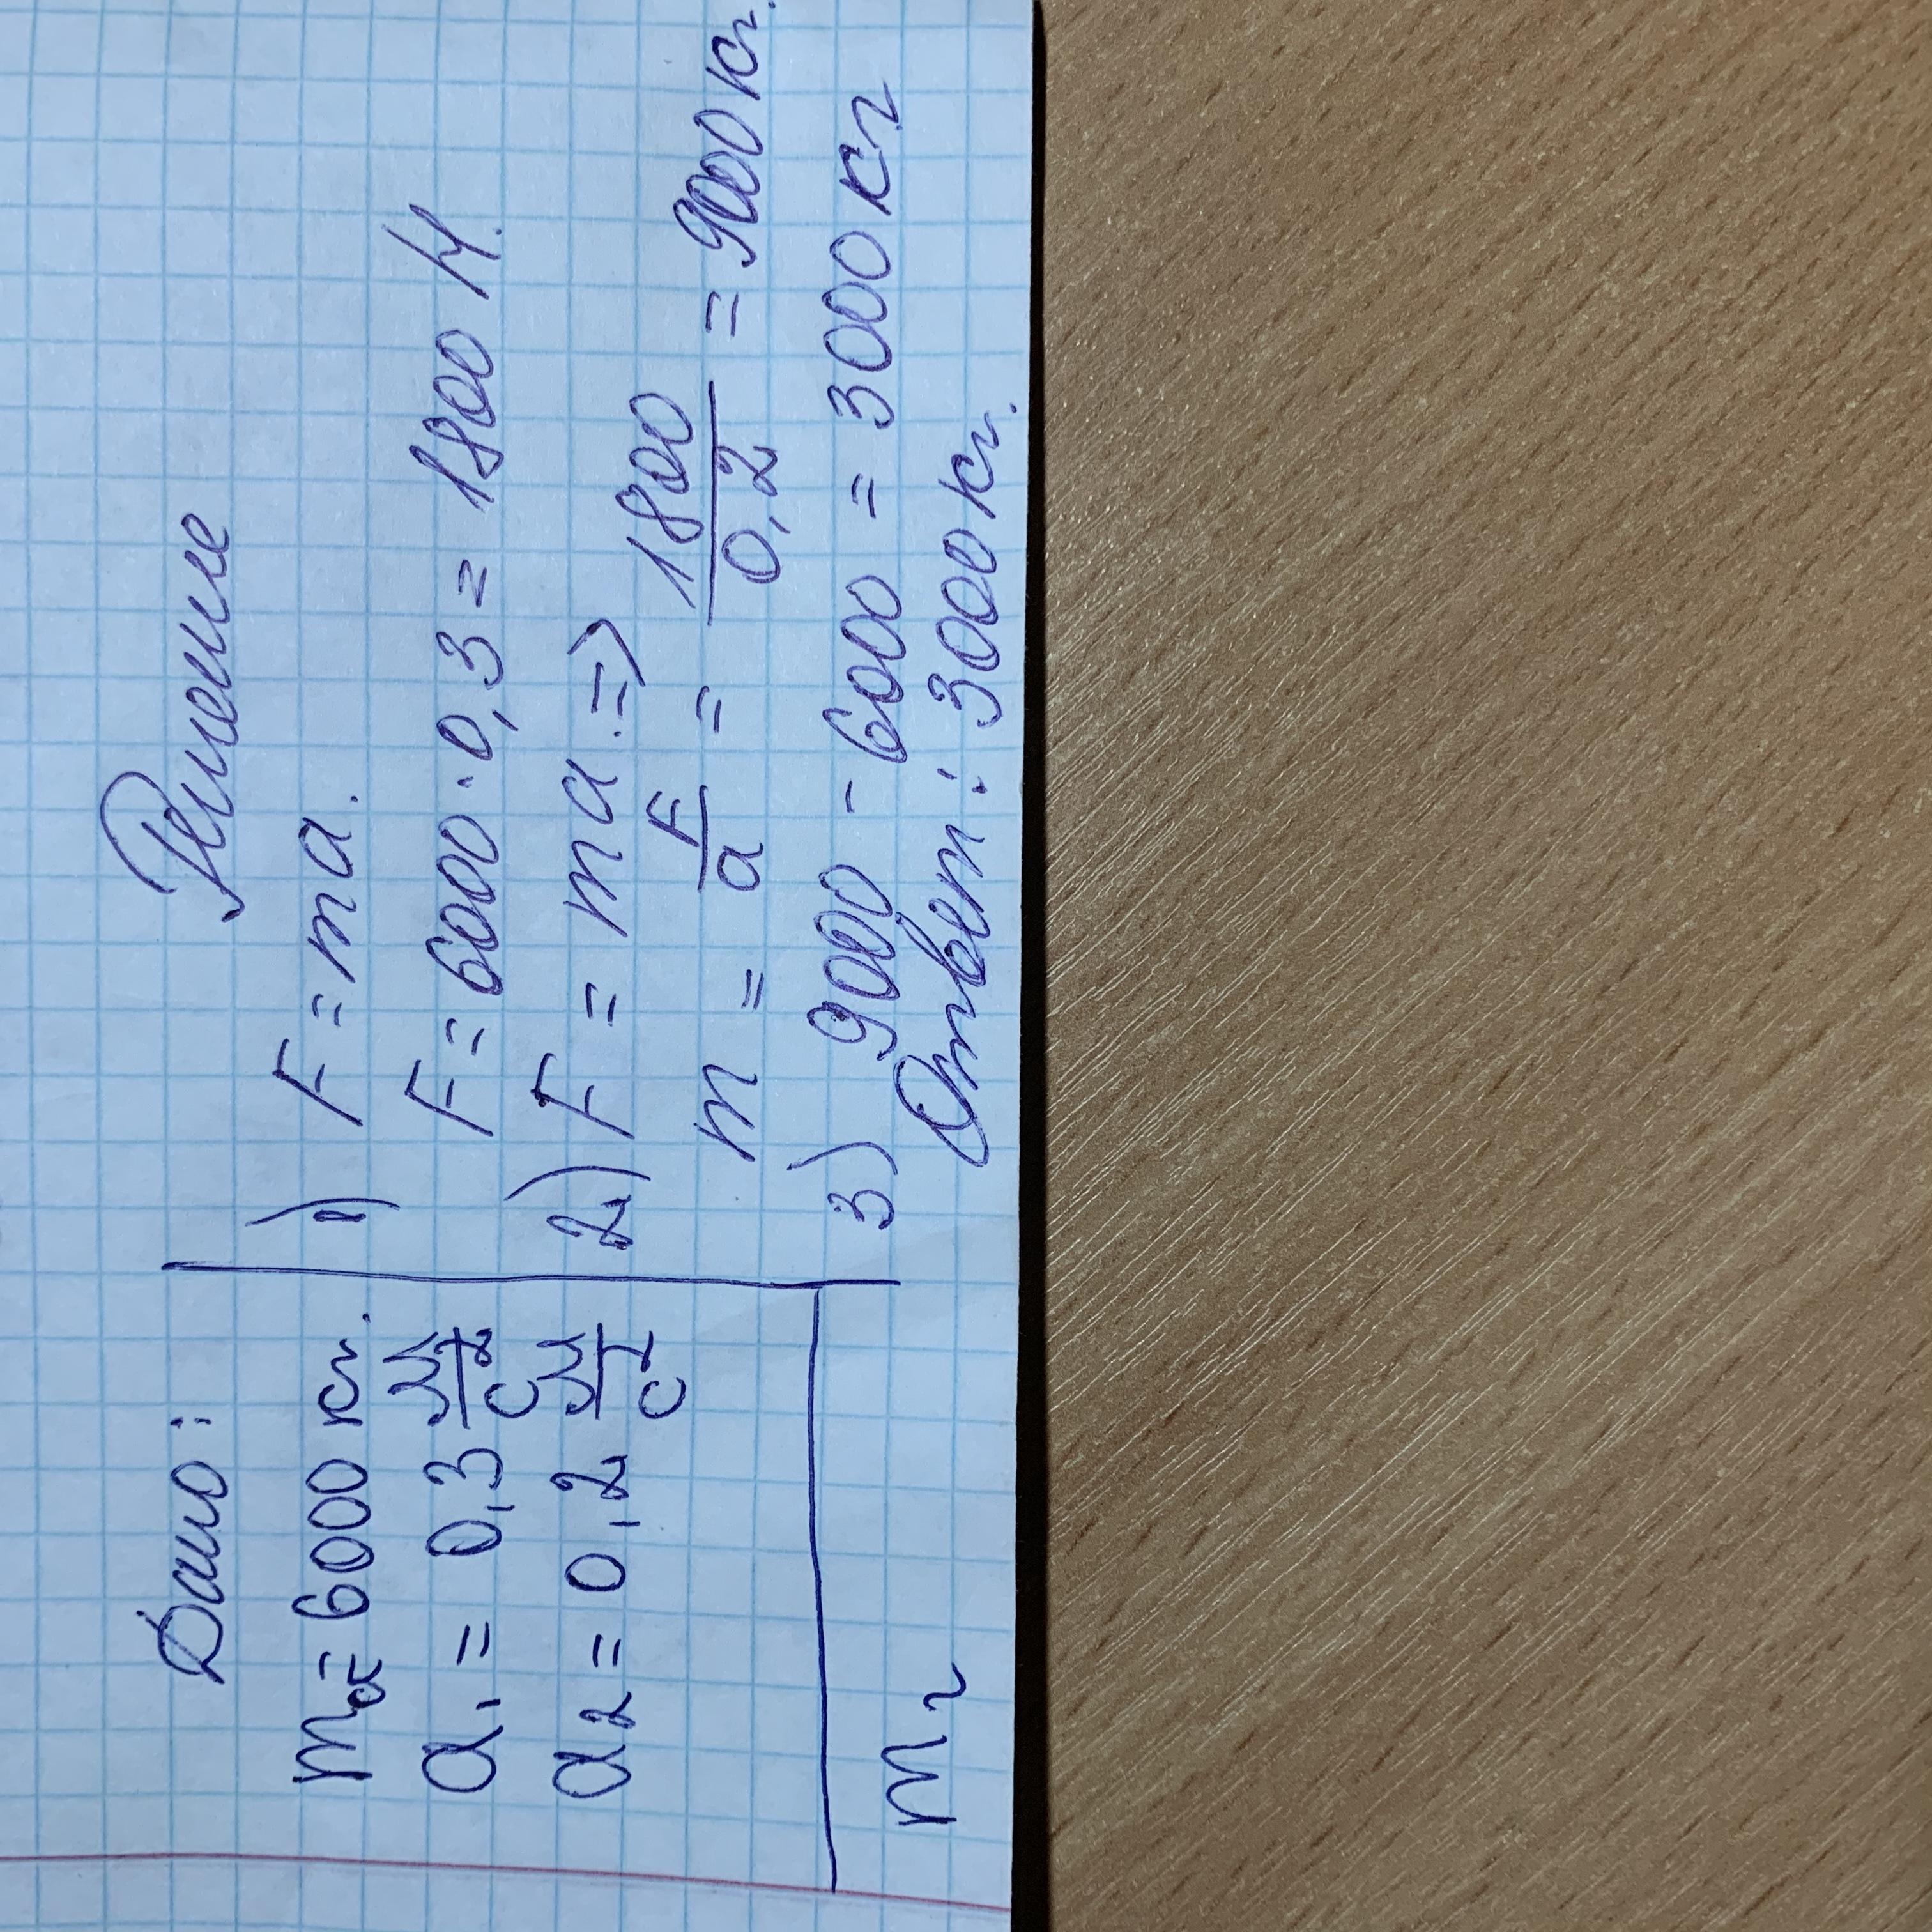 Дано:
m₀ = 6000 кг.
a₁ = 0,3 м/с²
a₂ = 0,2 м/с²
m₂
Решение
1) F = ma.
F = 6000 · 0,3 = 1800 Н.
2) F = ma =>
m = F/a = 1800/0,2 = 9000 кг.
3) 9000 - 6000 = 3000 кг
Ответ: 3000 кг.